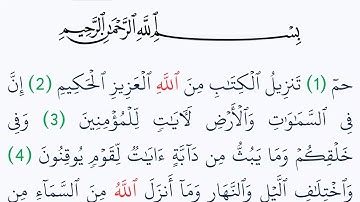 بِسْمِ اللَّهِ الرَّحْمَٰنِ الرَّحِيمِ
حمٓ (1) تَنزِيلُ الْكِتَابِ مِنَ اللَّهِ الْعَزِيزِ الْحَكِيمِ (2) إِنَّ
فِي السَّمَاوَاتِ وَالْأَرْضِ لَآيَاتٍ لِّلْمُؤْمِنِينَ (3) وَفِي
خَلْقِكُمْ وَمَا يَبُثُّ مِن دَآبَّةٍ ءَايَاتٌ لِّقَوْمٍ يُوقِنُونَ (4)
وَاخْتِلَافِ الَّيْلِ وَالنَّهَارِ وَمَآ أَنزَلَ اللَّهُ مِنَ السَّمَآءِ مِن